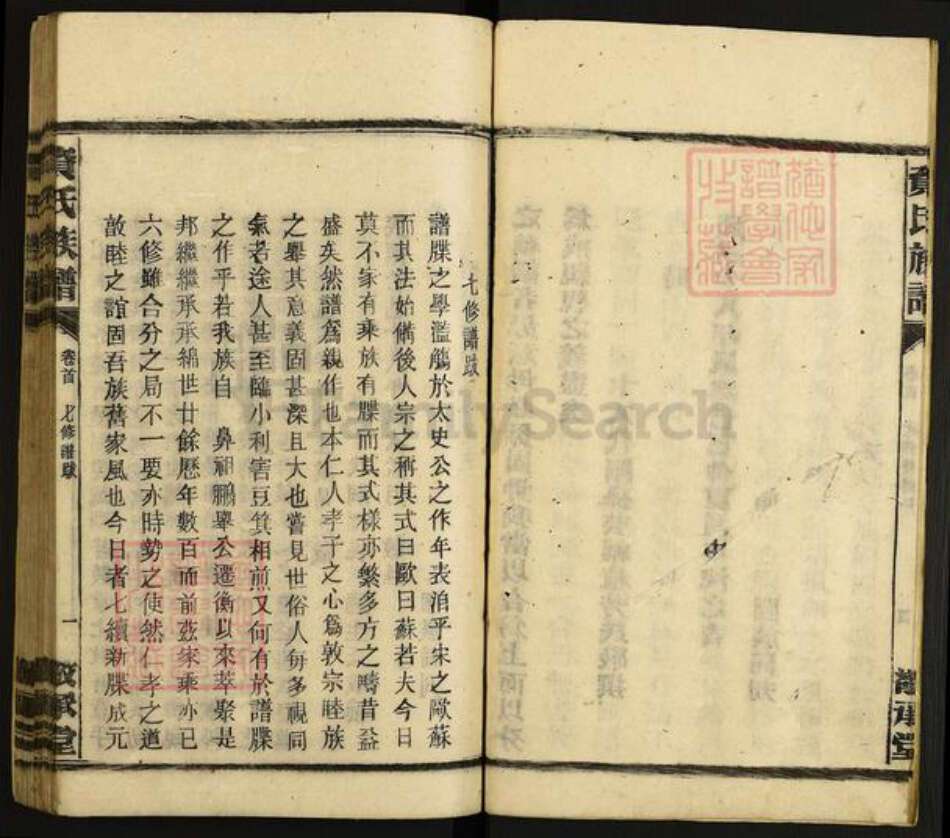 七修譜跋
譜牒之學濫觴於太史公之作年表洎乎宋之歐蘇
而其法始備後人宗之稱其式曰歐曰蘇若夫今日
莫不家有乘族有牒而其式樣亦繁多方之疇昔益
盛矣然譜爲親作也本仁人孝子之心爲敦宗睦族
之舉其意義固甚深且大也嘗見世俗人每多視同
氣若途人甚至臨小利害豆箕相煎又何有於譜牒
之作乎若我族自 鼻祖鵬舉公遷衡以來萃聚是
邦繼繼承承綿世廿餘歷年數百而前茲家乘亦已
六修雖合分之局不一要亦時勢之使然仁孝之道
敦睦之誼固吾族舊家風也今日者七續新牒成元
氏族譜
卷首
七修譜跋
一
承堂
氏族譜
承堂
FamilySearch